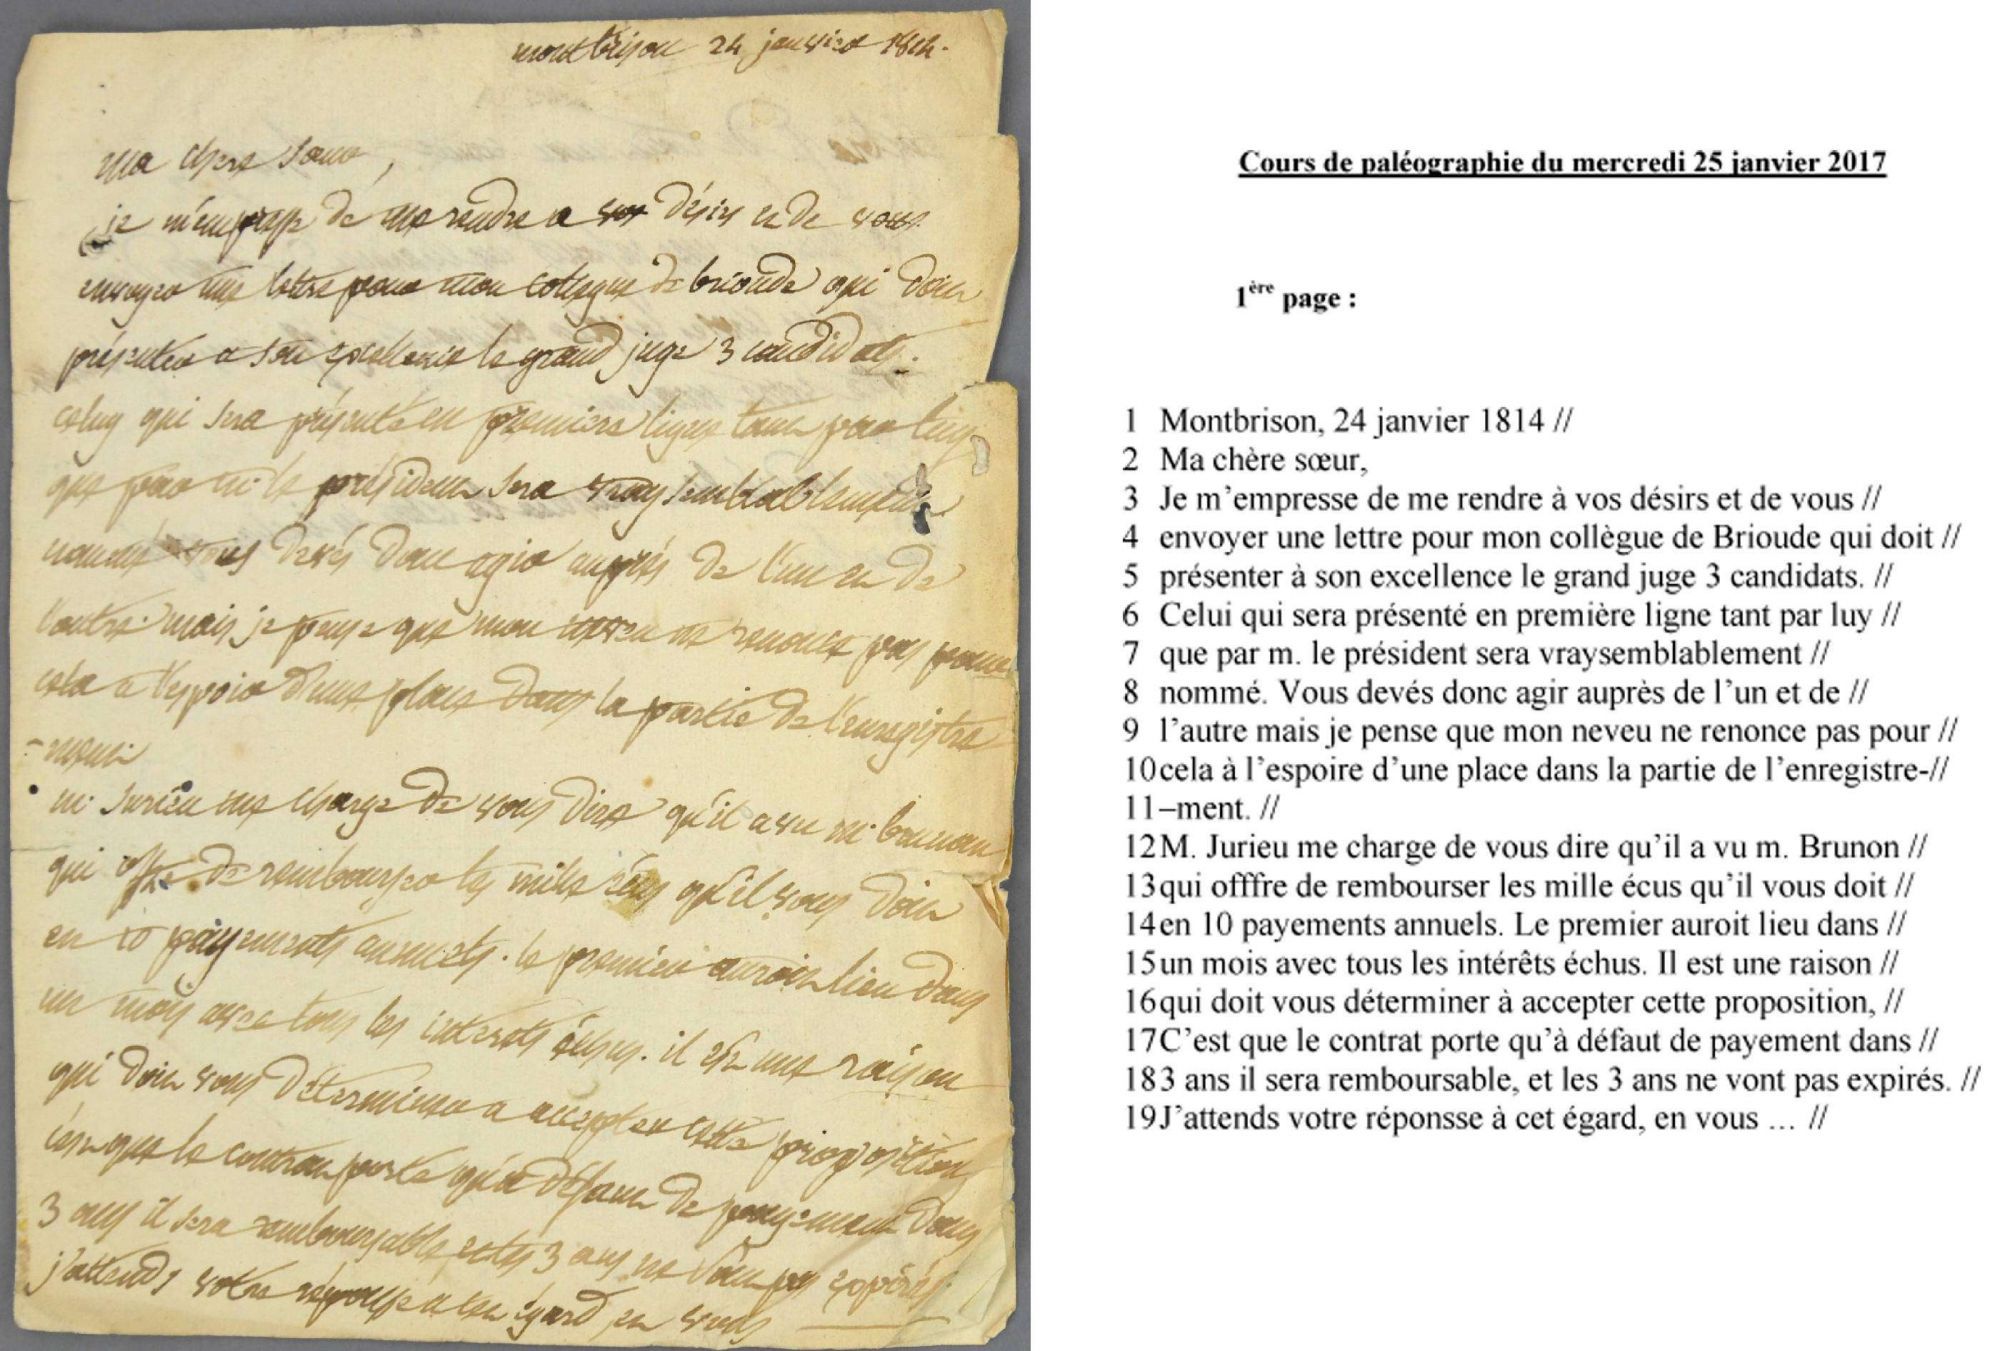 montbrison 24 janvier 1814.
ma chere sœur,
je m'empresse de me rendre a vos désirs et de vous
envoyer une lettre pour mon collegue de brioude qui doit
présenter a son excellence le grand juge 3 candidats.
celuy qui sera présenté en premiere ligne tant par luy
que par m. le président sera vraysemblablement
nommé vous devés donc agir auprés de l'un et de
l'autre. mais je pense que mon neveu ne renonce pas pour
cela a l'espoir d'une place dans la partie de l'enregistre
-ment.
m. jurieu me charge de vous dire qu'il a vu m. brunon
qui offre de rembourser les mille écus qu'il vous doit
en 10 payements annuels. le premier auroit lieu dans
un mois avec tous les interets échus. il est une raison
qui doit vous déterminer a accepter cette proposition
c'est que le contrat porte qu'a défaut de payement dans
3 ans il sera remboursable, et les 3 ans ne vont pas expirés.
j'attends votre réponsse a cet égard, en vous
Cours de paléographie du mercredi 25 janvier 2017
1ère page :
1 Montbrison, 24 janvier 1814 //
2 Ma chère sœur,
3 Je m'empresse de me rendre à vos désirs et de vous //
4 envoyer une lettre pour mon collègue de Brioude qui doit //
5 présenter à son excellence le grand juge 3 candidats. //
6 Celui qui sera présenté en première ligne tant par luy //
7 que par m. le président sera vraysemblablement //
8 nommé. Vous devés donc agir auprès de l'un et de //
9 l'autre mais je pense que mon neveu ne renonce pas pour //
10 cela à l'espoire d'une place dans la partie de l'enregistre-//
11 –ment. //
12 M. Jurieu me charge de vous dire qu'il a vu m. Brunon //
13 qui offfre de rembourser les mille écus qu'il vous doit //
14 en 10 payements annuels. Le premier auroit lieu dans //
15 un mois avec tous les intérêts échus. Il est une raison //
16 qui doit vous déterminer à accepter cette proposition, //
17 C'est que le contrat porte qu'à défaut de payement dans //
18 3 ans il sera remboursable, et les 3 ans ne vont pas expirés. //
19 J'attends votre réponsse à cet égard, en vous … //